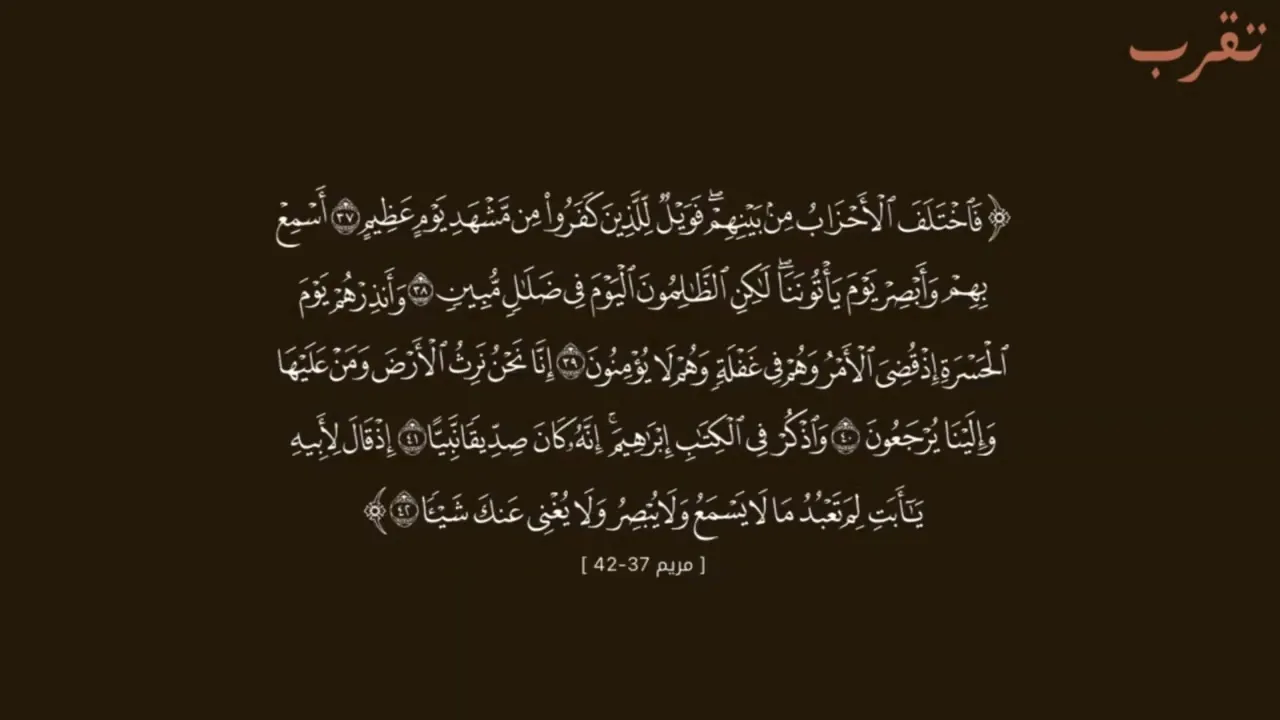 تقرب
﴿ فَٱخْتَلَفَ ٱلْأَحْزَابُ مِنۢ بَيْنِهِمْ ۖ فَوَيْلٌ لِّلَّذِينَ كَفَرُوا۟ مِن مَّشْهَدِ يَوْمٍ عَظِيمٍ ٣٧ أَسْمِعْ
بِهِمْ وَأَبْصِرْ يَوْمَ يَأْتُونَنَا ۖ لَٰكِنِ ٱلظَّٰلِمُونَ ٱلْيَوْمَ فِى ضَلَٰلٍ مُّبِينٍ ٣٨ وَأَنذِرْهُمْ يَوْمَ
ٱلْحَسْرَةِ إِذْ قُضِىَ ٱلْأَمْرُ وَهُمْ فِى غَفْلَةٍ وَهُمْ لَا يُؤْمِنُونَ ٣٩ إِنَّا نَحْنُ نَرِثُ ٱلْأَرْضَ وَمَنْ عَلَيْهَا
وَإِلَيْنَا يُرْجَعُونَ ٤٠ وَٱذْكُرْ فِى ٱلْكِتَٰبِ إِبْرَٰهِيمَ ۚ إِنَّهُۥ كَانَ صِدِّيقًا نَّبِيًّا ٤١ إِذْ قَالَ لِأَبِيهِ
يَٰٓأَبَتِ لِمَ تَعْبُدُ مَا لَا يَسْمَعُ وَلَا يُبْصِرُ وَلَا يُغْنِى عَنكَ شَيْـًٔا ٤٢ ﴾
[ مريم 37-42 ]